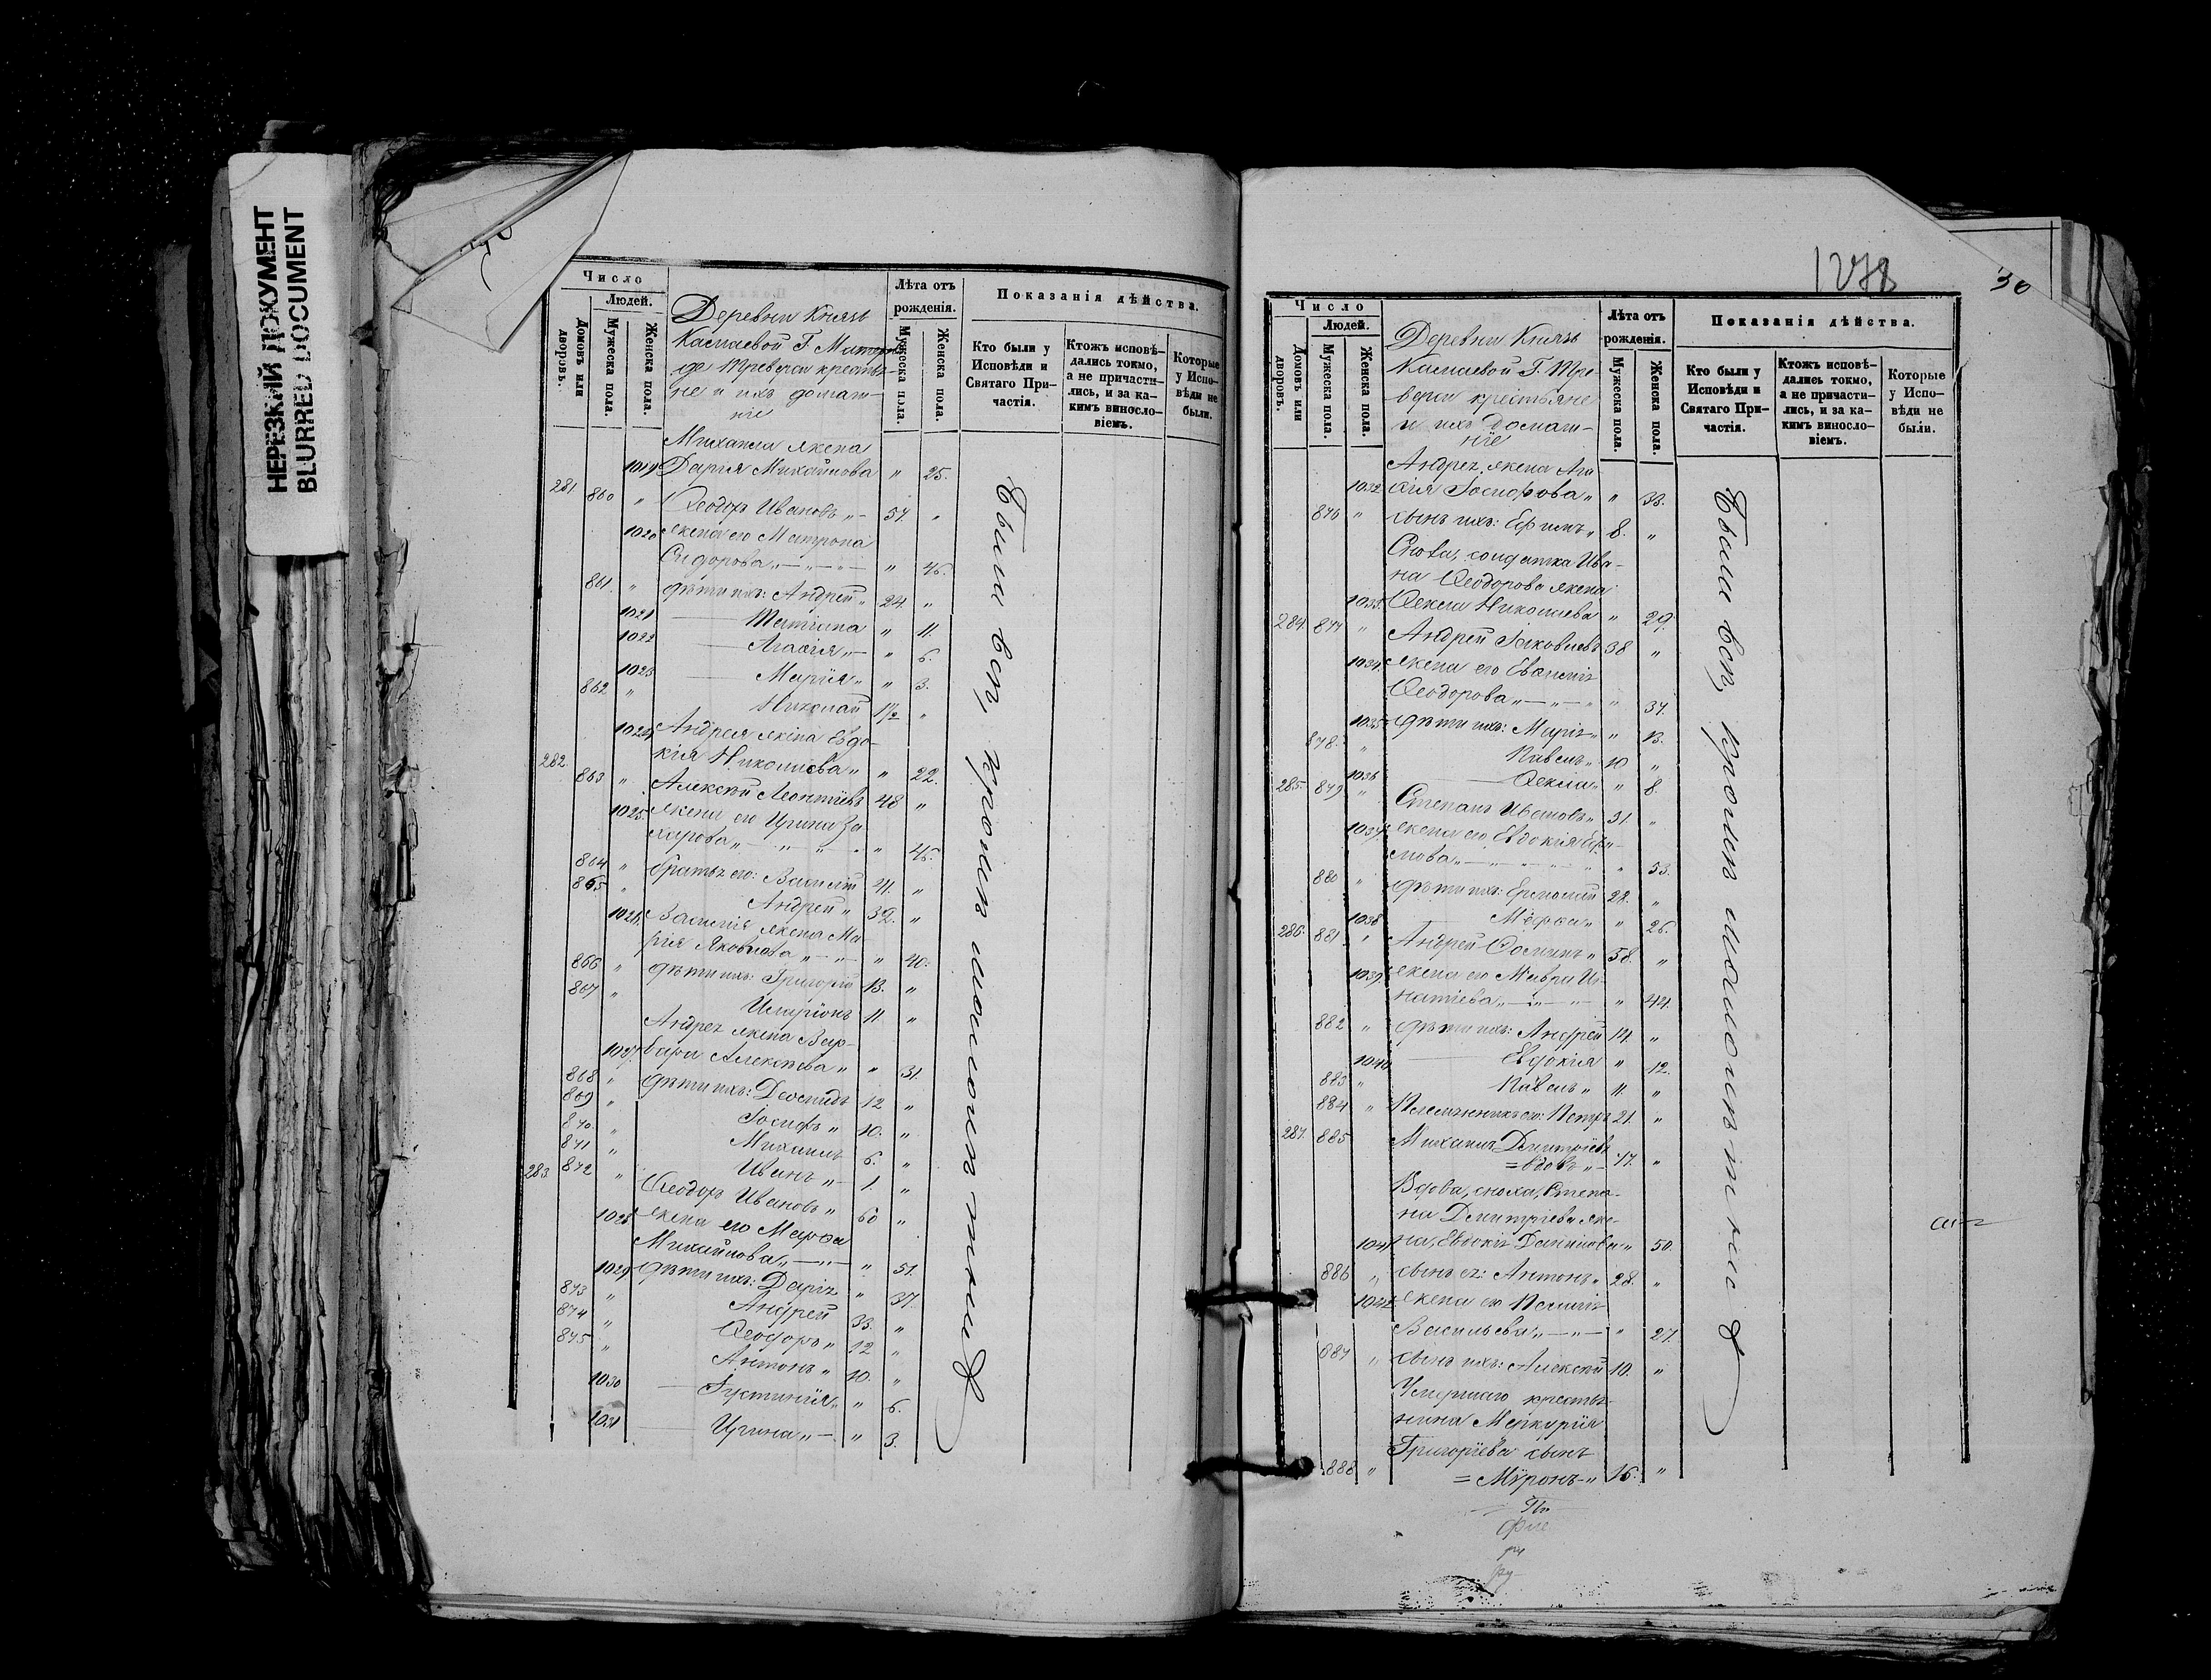 НЕРЕЗКИЙ ДОКУМЕНТ
BLURRED DOCUMENT
Число
Людей.
Домовъ или дворовъ.
Мужеска пола.
Женска пола.
Деревни Князь
Касмаевой Г.
де Тревери крестья-
не и ихъ домаш-
ніе
Лѣта отъ рожденія.
Мужеска пола.
Женска пола.
Показанія дѣйства.
Кто были у Исповѣди и Святаго При-частія.
Ктожъ исповѣ-дались токмо, а не причасти-лись, и за ка-кимъ винословіемъ.
Которые у Испо-вѣди не были.
Михаила жена
1019 Дарія Михайлова " 25.
281 860 " Ѳеодоръ Ивановъ " 57. "
1020 жена его Матрона
Сидорова " — " — " 45.
861. " дѣти ихъ: Андрей " 24. "
1021 Татіана " 11.
1022 Агаѳія " — " 6.
1023 Марія " " 3.
862 " Николай 1½ "
1024 Андрея жена Евдо-
кія Николаева " " 22.
282. 863 " Алексѣй Леонтіевъ 48 "
1025. жена его Ирина За-
харова " — " " " 45.
864 " братья его: Василій 41. "
865 " Андрей " 32. "
1026. Василія жена Ма-
рія Яковлева " — " — " 40.
866 " дѣти ихъ: Григорій 13. "
867 " Иларіонъ 11. "
Андрея жена Вар-
1027. вара Алексѣева " " 31.
868 " дѣти ихъ: Леонидъ 12 "
869 " Іосифъ " 10. "
870. " Михаилъ 6. "
871 " Иванъ " 1. "
283. 872 " Ѳеодоръ Ивановъ " 60 "
1028 жена его Марѳа
Михайлова " — " — " 51.
1029 дѣти ихъ: Дарія " 37.
873 " Андрей 33. "
874 " Ѳеодоръ " 12 "
875 " Антонъ " 10. "
1030 Іустинія " " 6.
1031 Ирина " — " 3.
Были всѣ, кромѣ малолѣтнихъ
1278
30
Число
Людей.
Домовъ или дворовъ.
Мужеска пола.
Женска пола.
Деревни Князь
Касмаевой Г. Тре-
вери крестьяне
и ихъ домаш-
ніе
Лѣта отъ рожденія.
Мужеска пола.
Женска пола.
Показанія дѣйства.
Кто были у Исповѣди и Святаго При-частія.
Ктожъ исповѣ-дались токмо, а не причасти-лись, и за ка-кимъ винословіемъ.
Которые у Испо-вѣди не были.
Андрея жена Ага-
1032 ѳія Іосифова " " 33.
876 " сынъ ихъ: Ефимъ " 8. "
солдатка Ива-
на Ѳеодорова жена
1033. Ѳекла Николаева " 29.
284. 877 " Андрей Іаковлевъ 38 "
1034. жена его Евѳимія
Ѳеодорова " — " — " " 37.
1035 дѣти ихъ: Марія " " 13.
878. " Павелъ " 10 "
1036 Ѳекла " " 8.
285. 879 " Степанъ Ивановъ " 31. "
1037 жена его Евдокія Еф-
мова " — " " " 53.
880 " дѣти ихъ: Ермолай 22. "
1038 Марѳа " " 26.
286. 881 " Андрей Ѳоминъ " 58. "
1039 жена его Мавра Иг-
натіева " — " — " " 44.
882 " дѣти ихъ: Андрей 14. "
1040 Евдокія " 12.
883 " Павелъ " 11. "
884 " Племянникъ его: Петръ 21. "
287. 885 Михаилъ Димитріевъ
= вдовъ " — 47. "
Вдова, сноха, Степа-
на Димитріева же-
1041 на, Евдокія Даніилова " " 50.
886 " сынъ ея: Антонъ " 28. "
1042. жена его Пелагія
Васильева " — " — " 27.
887 " сынъ ихъ: Алексѣй 10. "
Умершаго крестья-
нина Меркурія
Григоріева сынъ
888 " = Миронъ — " 16. "
Были всѣ, кромѣ малолѣтнихъ